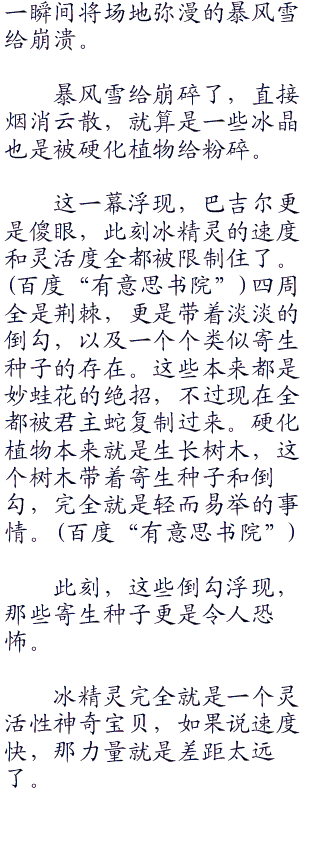 一瞬间将场地弥漫的暴风雪
给崩溃。
暴风雪给崩碎了，直接
烟消云散，就算是一些冰晶
也是被硬化植物给粉碎。
这一幕浮现，巴吉尔更
是傻眼，此刻冰精灵的速度
和灵活度全都被限制住了。
(百度“有意思书院”)四周
全是荆棘，更是带着淡淡的
倒勾，以及一个个类似寄生
种子的存在。这些本来都是
妙蛙花的绝招，不过现在全
都被君主蛇复制过来。硬化
植物本来就是生长树木，这
个树木带着寄生种子和倒
勾，完全就是轻而易举的事
情。(百度“有意思书院”)
此刻，这些倒勾浮现，
那些寄生种子更是令人恐
怖。
冰精灵完全就是一个灵
活性神奇宝贝，如果说速度
快，那力量就是差距太远
了。